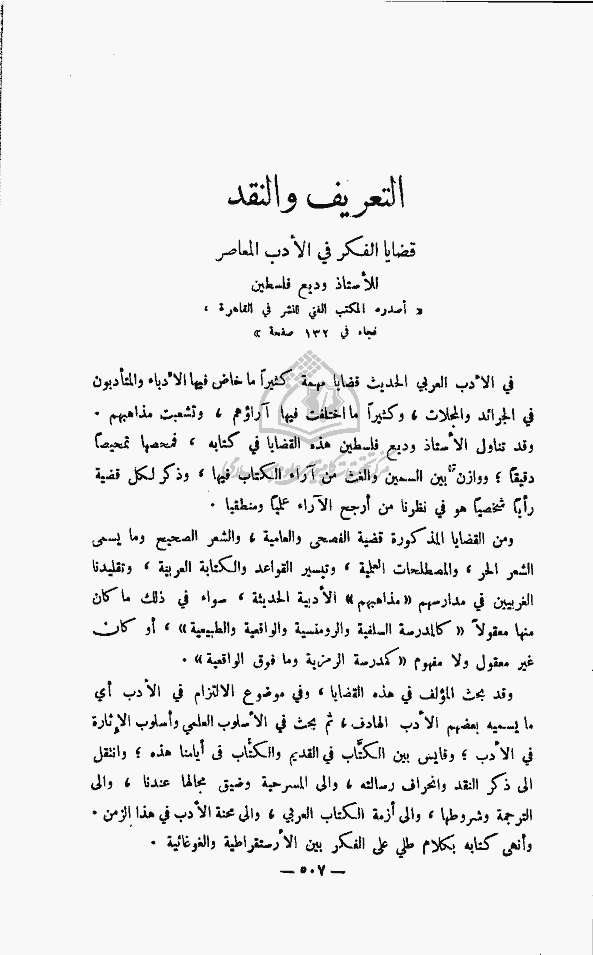 التعريف والنقد
قضايا الفكر في الأدب المعاصر
للأستاذ وديع فلسطين
« أصدره المكتب الفني للنشر في القاهرة ،
فجاء في ١٣٢ صفحة »
في الأدب العربي الحديث قضايا مهمة كثيراً ما خاض فيها الأدباء والمتأدبون
في الجرائد والمجلات ، وكثيراً ما اختلفت فيها آراؤهم ، وتشعبت مذاهبهم .
وقد تناول الأستاذ وديع فلسطين هذه القضايا في كتابه ، فمحصها تمحيصاً
دقيقاً ؛ ووازن بين السمين والغث من آراء الكتاب فيها ، وذكر لكل قضية
رأياً شخصياً هو في نظرنا من أرجح الآراء علمياً ومنطقيا .
ومن القضايا المذكورة قضية الفصحى والعامية ، والشعر الصحيح وما يسمى
الشعر الحر ، والمصطلحات العلمية ، وتيسير القواعد والكتابة العربية ، وتقليدنا
الغربيين في مدارسهم «مذاهبهم» الأدبية الحديثة ، سواء في ذلك ما كان
منها معقولاً « كالمدرسة السلفية والرومنسية والواقعية والطبيعية » ، أو كان
غير معقول ولا مفهوم « كمدرسة الرمزية وما فوق الواقعية » .
وقد بحث المؤلف في هذه القضايا ، وفي موضوع الالتزام في الأدب أي
ما يسميه بعضهم الأدب الهادف ، ثم بحث في الأسلوب العلمي وأسلوب الإثارة
في الأدب ؛ وقايس بين الكتَّاب في القديم والكتَّاب في أيامنا هذه ؛ وانتقل
الى ذكر النقد وانحراف رسالته ، والى المسرحية وضيق مجالها عندنا ، والى
الترجمة وشروطها ، والى أزمة الكتاب العربي ، والى محنة الأدب في هذا الزمن .
وأنهى كتابه بكلام طلي على الفكر بين الأرستقراطية والغوغائية .
— ٥٠٧ —